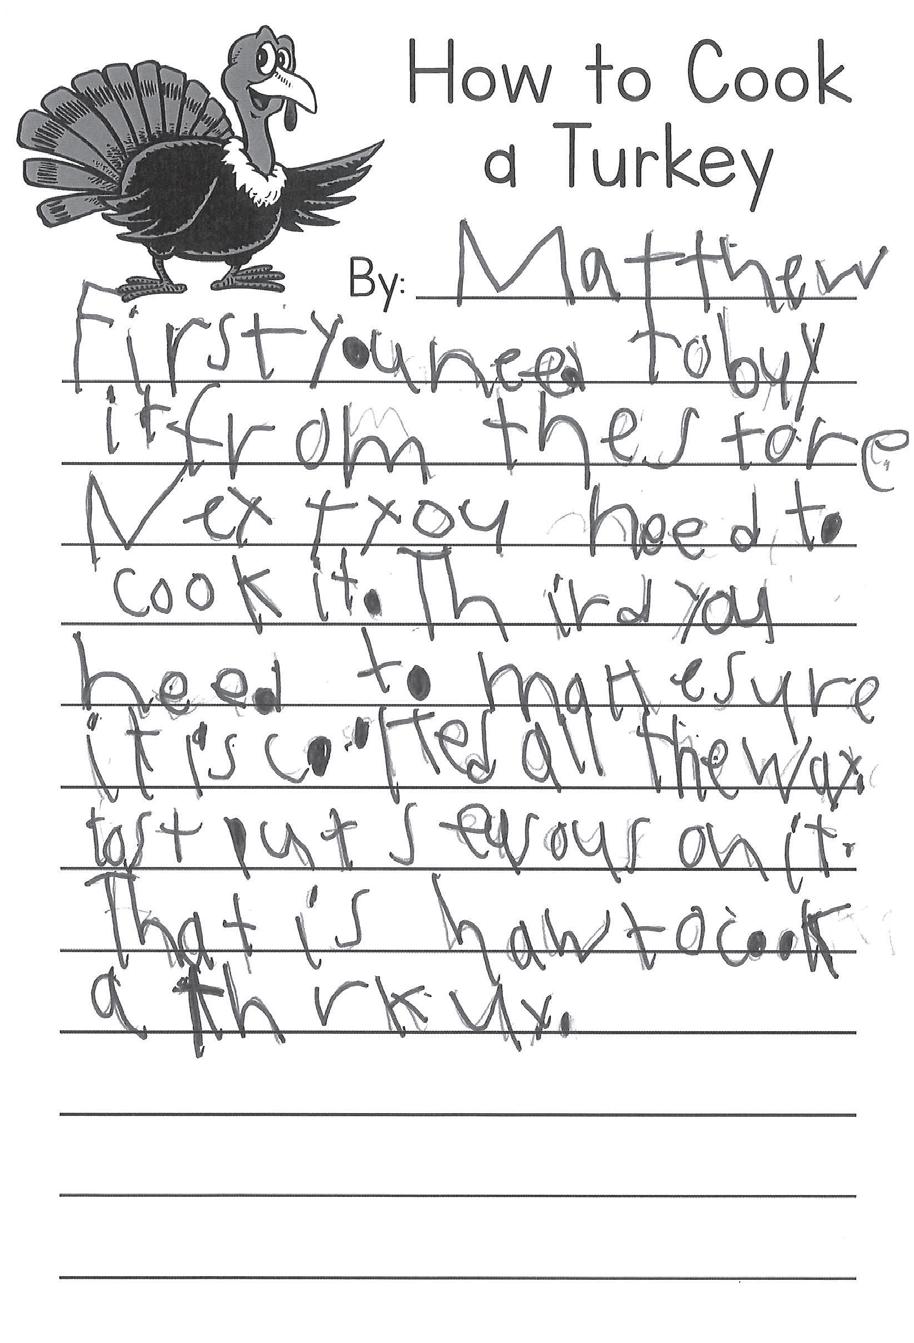 How to Cook
a Turkey
By: Matthew
First you need to buy
it from the store
Next you need to
cook it. Third you
need to make sure
it is cooked all the way.
last put sevous on it.
That is haw to cook
a thrkuy.